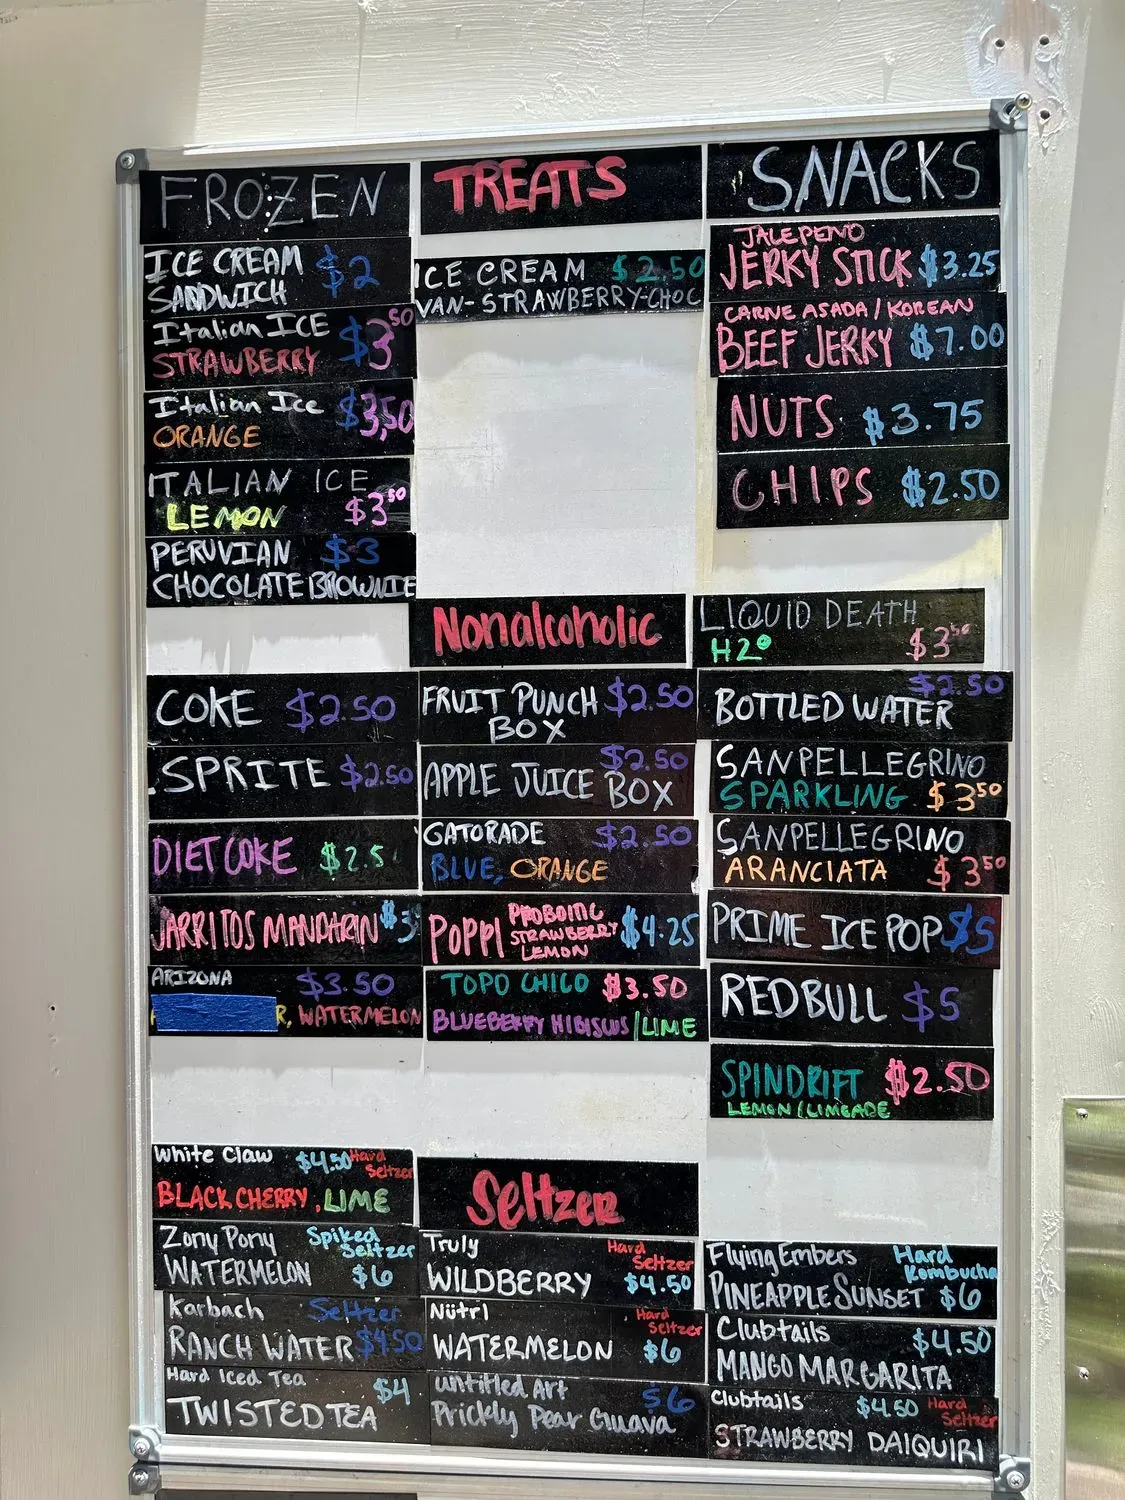 FROZEN
TREATS
SNACKS
ICE CREAM $2
SANDWICH
Italian ICE $3.50
STRAWBERRY
Italian Ice $3,50
ORANGE
ITALIAN ICE
LEMON $3.50
PERUVIAN $3
CHOCOLATE BROWNIE
ICE CREAM $2.50
VAN-STRAWBERRY-CHOC
JALEPENO
JERKY STICK $3.25
CARNE ASADA / KOREAN
BEEF JERKY $7.00
NUTS $3.75
CHIPS $2.50
Nonalcoholic
LIQUID DEATH
H2O $3.50
COKE $2.50
SPRITE $2.50
DIET COKE $2.5
JARRITOS MANDARIN $3
ARIZONA $3.50
R, WATERMELON
FRUIT PUNCH $2.50
BOX
APPLE JUICE BOX $2.50
GATORADE $2.50
BLUE, ORANGE
POPPI PROBOITC STRAWBERRY LEMON $4.25
TOPO CHICO $3.50
BLUEBERRY HIBISCUS/LIME
$2.50
BOTTLED WATER
SANPELLEGRINO
SPARKLING $3.50
SANPELLEGRINO
ARANCIATA $3.50
PRIME ICE POP $5
REDBULL $5
SPINDRIFT $2.50
LEMON/LIMEADE
Seltzer
White Claw $4.50 Hard Seltzer
BLACK CHERRY, LIME
Zony Pony Spiked Seltzer
WATERMELON $6
Karbach Seltzer
RANCH WATER $4.50
Hard Iced Tea $4
TWISTED TEA
Truly Hard Seltzer
WILDBERRY $4.50
Nütrl Hard Seltzer
WATERMELON $6
untitled Art $6
Prickly Pear Guava
Flying Embers Hard Kombucha
PINEAPPLE SUNSET $6
Clubtails $4.50
MANGO MARGARITA
Clubtails $4.50 Hard Seltzer
STRAWBERRY DAIQUIRI